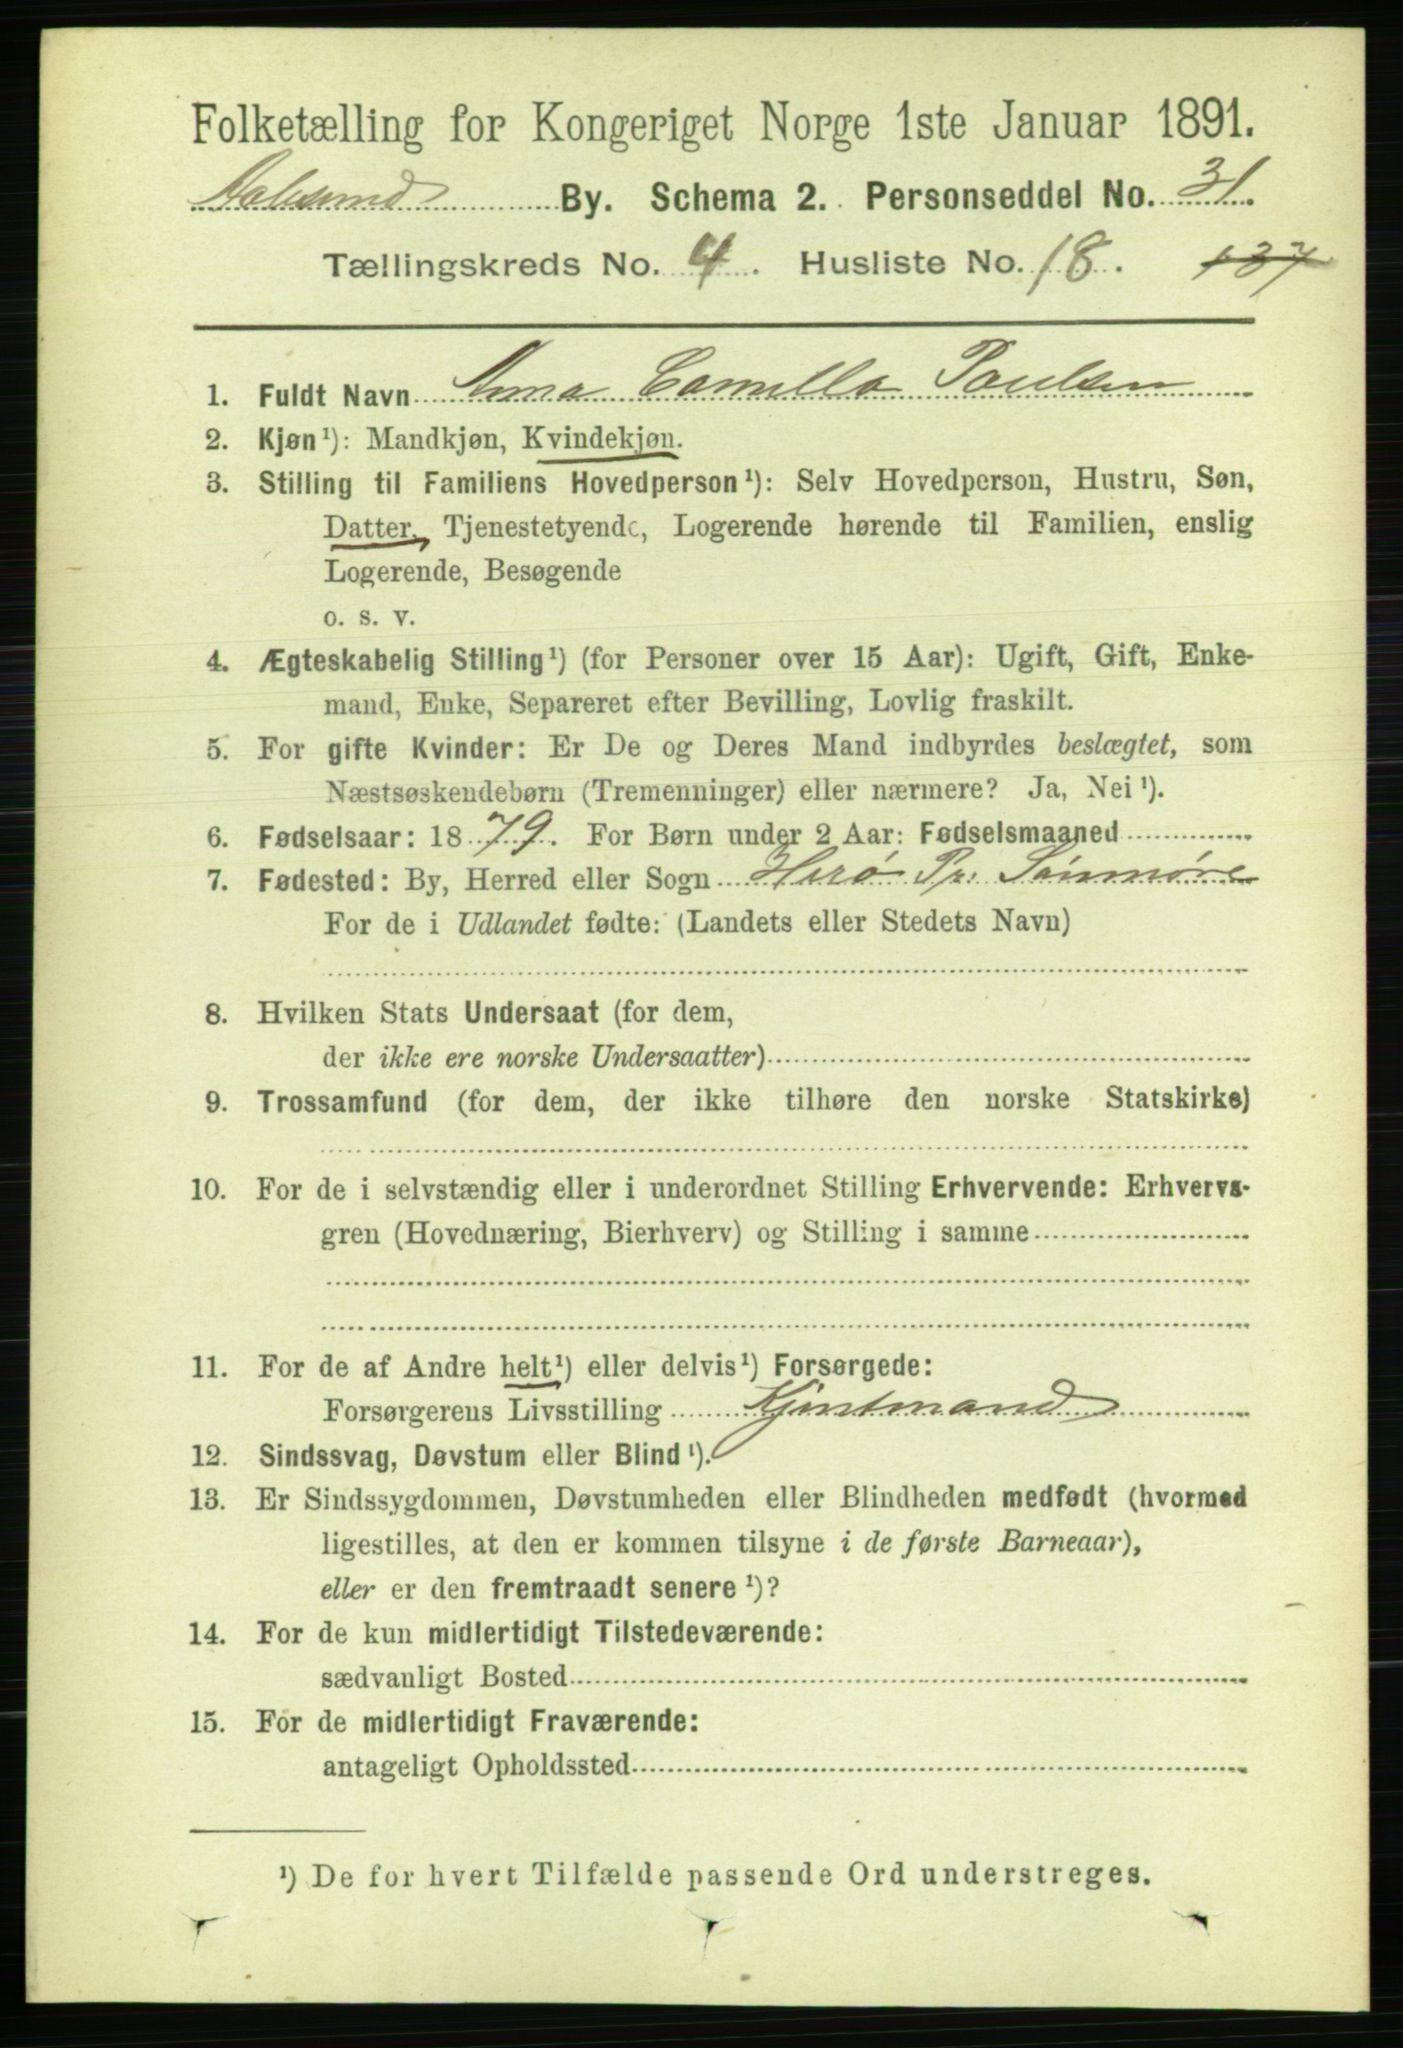 Folketælling for Kongeriget Norge 1ste Januar 1891.
Aalesund By. Schema 2. Personseddel No. 31.
Tællingskreds No. 4. Husliste No. 18. 137
1. Fuldt Navn Anna Camilla Paulsen
2. Kjøn¹): Mandkjøn, Kvindekjøn.
3. Stilling til Familiens Hovedperson¹): Selv Hovedperson, Hustru, Søn,
Datter, Tjenestetyende, Logerende hørende til Familien, enslig
Logerende, Besøgende
o. s. v.
4. Ægteskabelig Stilling¹) (for Personer over 15 Aar): Ugift, Gift, Enke-
mand, Enke, Separeret efter Bevilling, Lovlig fraskilt.
5. For gifte Kvinder: Er De og Deres Mand indbyrdes beslægtet, som
Næstsøskendebørn (Tremenninger) eller nærmere? Ja, Nei¹).
6. Fødselsaar: 1879. For Børn under 2 Aar: Fødselsmaaned
7. Fødested: By, Herred eller Sogn Herö Pr: Söndmöre
For de i Udlandet fødte: (Landets eller Stedets Navn)
8. Hvilken Stats Undersaat (for dem,
der ikke ere norske Undersaatter)
9. Trossamfund (for dem, der ikke tilhøre den norske Statskirke)
10. For de i selvstændig eller i underordnet Stilling Erhvervende: Erhvervs-
gren (Hovednæring, Bierhverv) og Stilling i samme
11. For de af Andre helt¹) eller delvis¹) Forsørgede:
Forsørgerens Livsstilling Kjøntmand
12. Sindssvag, Døvstum eller Blind¹).
13. Er Sindssygdommen, Døvstumheden eller Blindheden medfødt (hvormed
ligestilles, at den er kommen tilsyne i de første Barneaar),
eller er den fremtraadt senere¹)?
14. For de kun midlertidigt Tilstedeværende:
sædvanligt Bosted
15. For de midlertidigt Fraværende:
antageligt Opholdssted
¹) De for hvert Tilfælde passende Ord understreges.